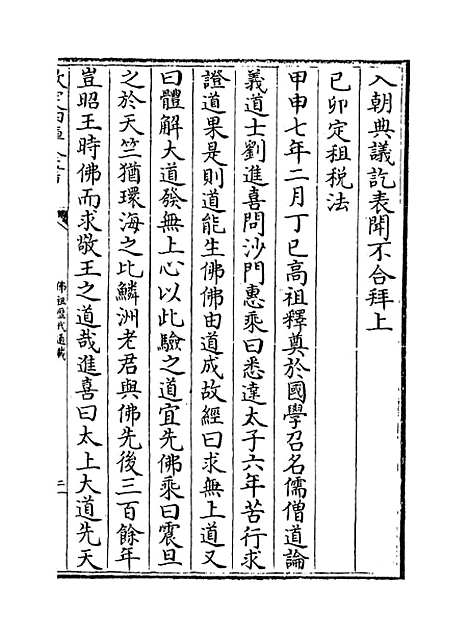 入朝典議訖表聞不合拜上
己卯定租税法
甲申七年二月丁巳高祖釋奠於國學召名儒僧道論
義道士劉進喜問沙門惠乘曰悉達太子六年苦行求
證道果是則道能生佛佛由道成故經曰求無上道又
曰體解大道發無上心以此驗之道宜先佛乘曰震旦
之於天竺猶環海之比鱗洲老君與佛先後三百餘年
豈昭王時佛而求敬王之道哉進喜曰太上大道先天
欽定四庫全書
佛祖歷代通載
二